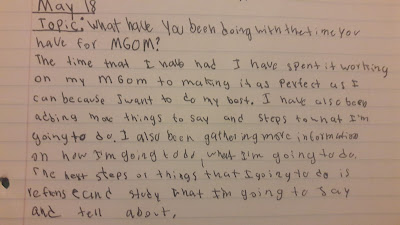 May 18
Topic: What have You been doing with the time you
have for MGOM?
The time that I have had I have spent it working
on my MGom to making it as perfect as I
can because I want to do my best. I have also been
adding more things to say and steps to what I'm
going to do. I also been gathering more information
on how I'm going to do, what I'm going to do.
The next steps or things that I going to do is
and study that I'm going to say
and tell about.